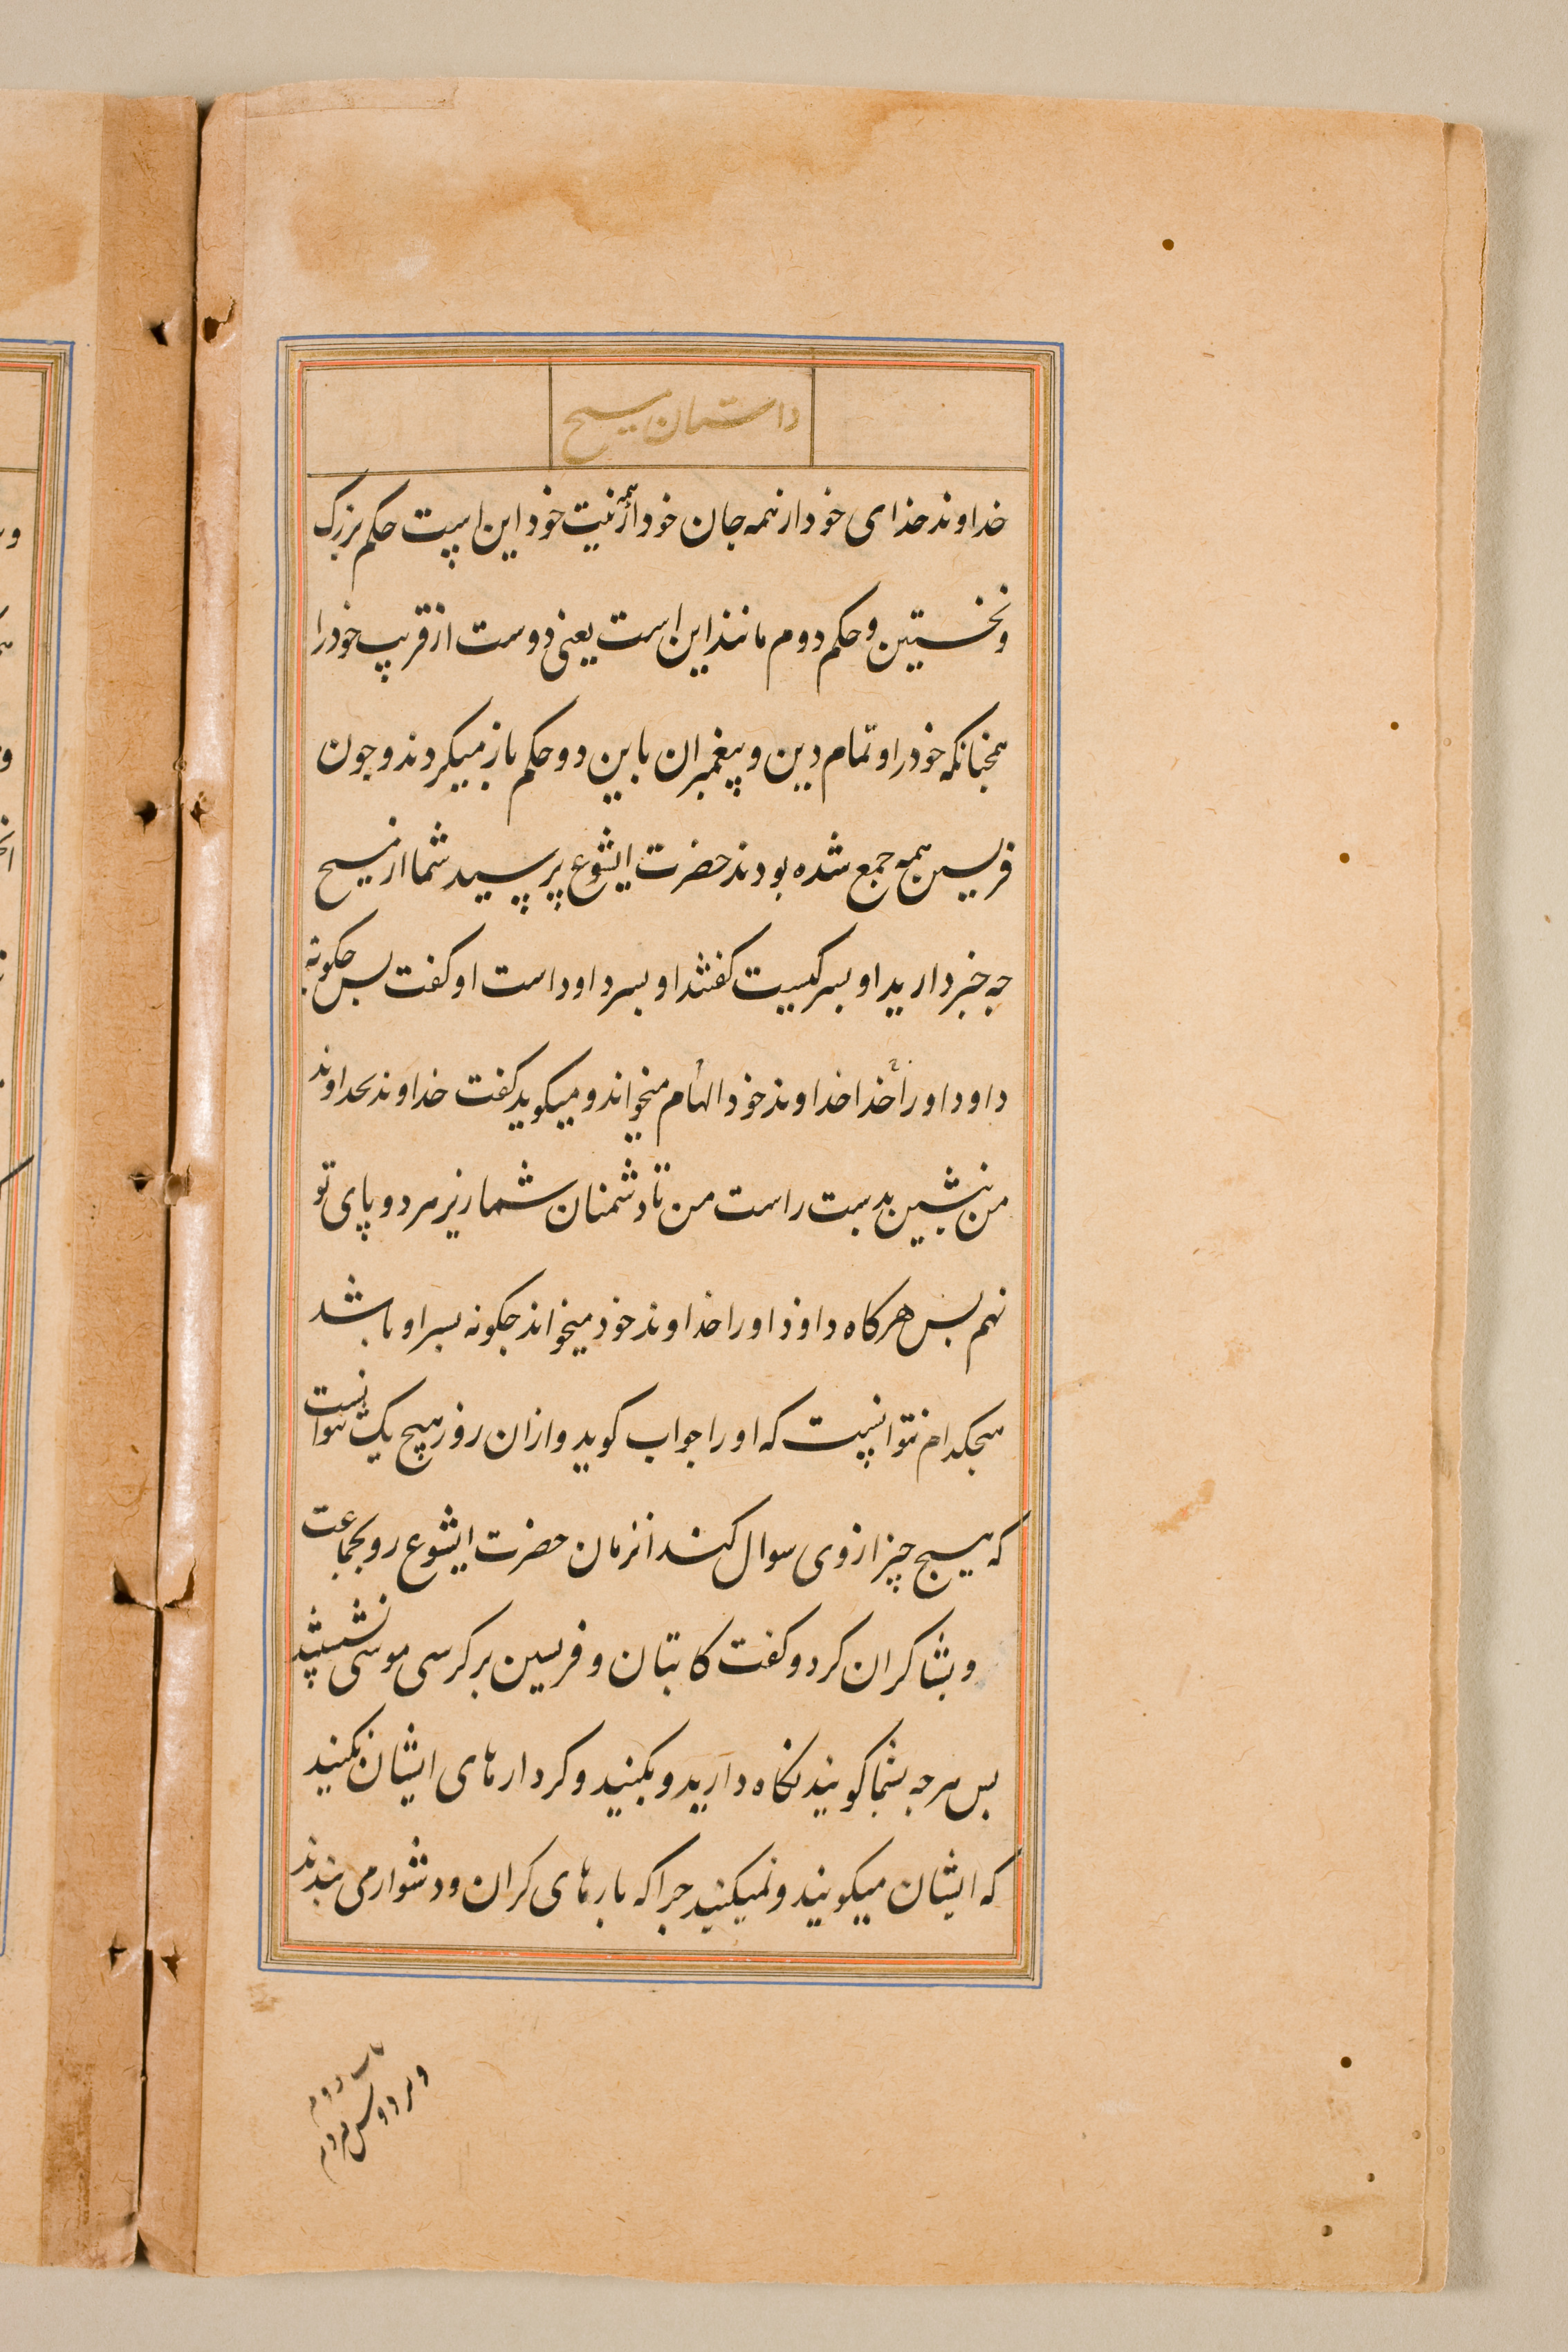 داستان مسیح
خداوند خدای خود از همه جان خود از همه نیت خود این است حکم بزرک
و نخستین و حکم دوم مانند این است یعنی دوست از قریب خود را
همجنانکه خود را و تمام دین و پیغمبران باین دو حکم باز میکردند و جون
فریسن همه جمع شده بودند حضرت ایشوع پرسید شما از مسیح
جه خبر دارید او بسر کیست کفتند او بسر داود است او کفت بس جکونه
داود او را خدا خداوند خود الهام میخواند و میکوید کفت خداوند بخداوند
من بنشین بدست راست من تا دشمنان شما زیر هر دو پای تو
نهم بس هرکاه داوذ او را خداوند خود میخواند جکونه بسر او باشد
هیجکدام نتوانست که او را جواب کوید و ازان روز هیچ یک نتوانست
که هیسج چیز از وی سوال کند انزمان حضرت ایشوع رو بجماعت
و بشاکران کرد و کفت کاتبان و فریسین بر کرسی موسی نشستند
بس هرجه بشما کویند نکاه دارید و بکنید و کردارهای ایشان نکنید
که ایشان میکویند و نمیکنند جراکه بارهای کران و دشوار می بندند
باب دوم
و بر دوش مردم